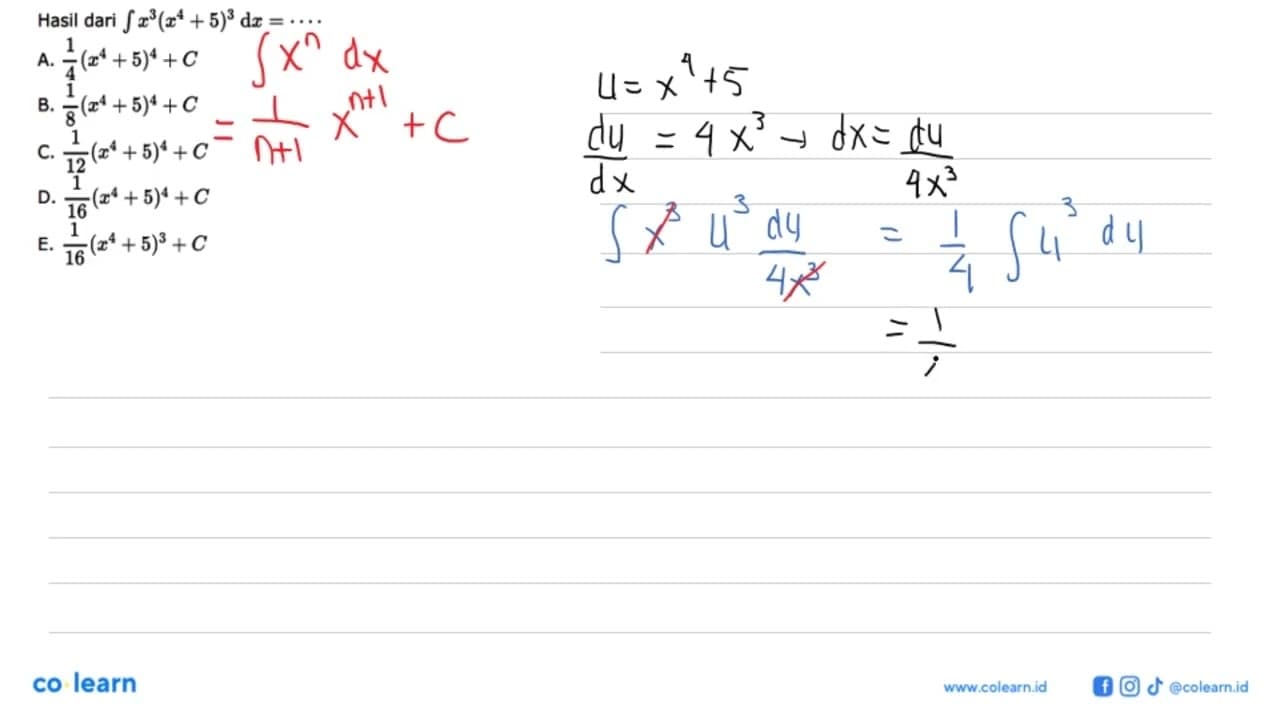 Hasil dari ∫ x³(x⁴ + 5)³ dx = ····
A. 1/4 (x⁴ + 5)⁴ + C
B. 1/8 (x⁴ + 5)⁴ + C
C. 1/12 (x⁴ + 5)⁴ + C
D. 1/16 (x⁴ + 5)⁴ + C
E. 1/16 (x⁴ + 5)³ + C
∫ xⁿ dx
= 1/(n+1) xⁿ⁺¹ + C
u = x⁴ + 5
du/dx = 4x³ → dx = du/4x³
∫ x³ u³ du/4x³ = 1/4 ∫ u³ du
= 1/
co learn
www.colearn.id
@colearn.id